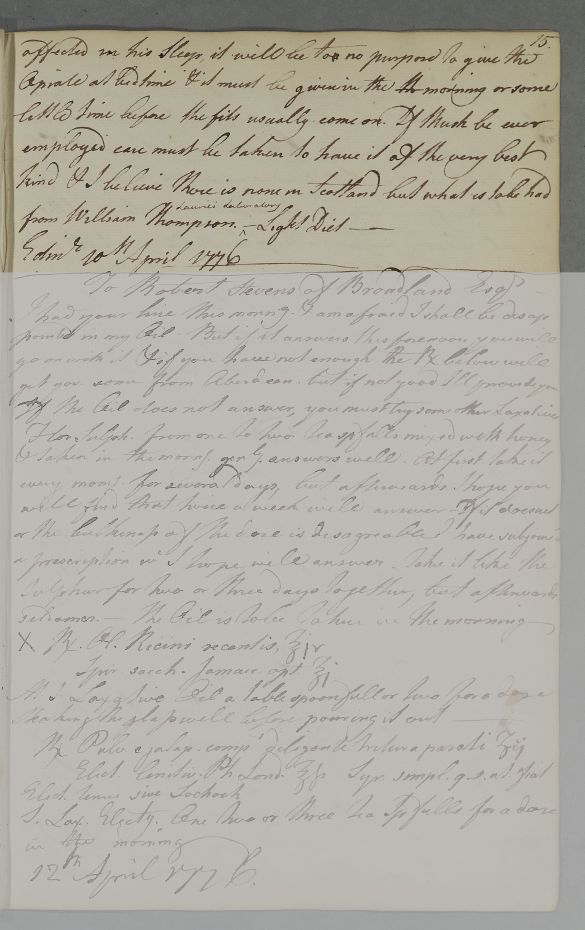 15.
affected in his Sleep, it will be to no purpose to give the
Opiate at bedtime & it must be given in the morning or some
little time before the fits usually come on. If Musk be ever
employed care must be taken to have it of the very best
kind & I believe there is none in Scotland but what is to be had
from William Thompson. Laurie's Laboratory — Light Diet —
Edinr. 10th April 1776
To Robert Stevens of Broadland Esqr.
I had your line this morng. I am afraid I shall be disap
pointed in my Oil. But if it answers this forenoon you will
go on with it & if you have not enough the Rx below will
get you some from Aberdeen. but if not good I'll provide you
If the Oil does not answer, you must try some other Laxatives
Flor. Sulph. from one to two teaspfulls mixed with honey
& taken in the morng. answers well. At first take it
every morng. for several days, but afterwards I hope you
will find that twice a week will answer. If it does not
or the bulkiness of the dose is disagreeable I have subjoin'd
a prescription wc. I hope will answer. Take it like the
Sulphur for two or three days together, but afterwards
seldomer. — The Oil is to be taken in the morning
X Rx. Ol. Ricini recentis, ʒiv
Spir. sacch. Jamaic. opt. ʒj
M. S. Laxative Oil a tablespoonfull or two for a dose
shaking the glass well before pouring it out —
Rx Pulv. e jalap. comps. diligente tritura parati ʒij
Elect. lenitiv. Ph. Lond. ʒfs Syr. simpl. q.s. ut fiat
Elect. tenue sive Lochoch
S. Lax. Electy. One two or three tea spfulls for a dose
in the morning
12th April 1776.